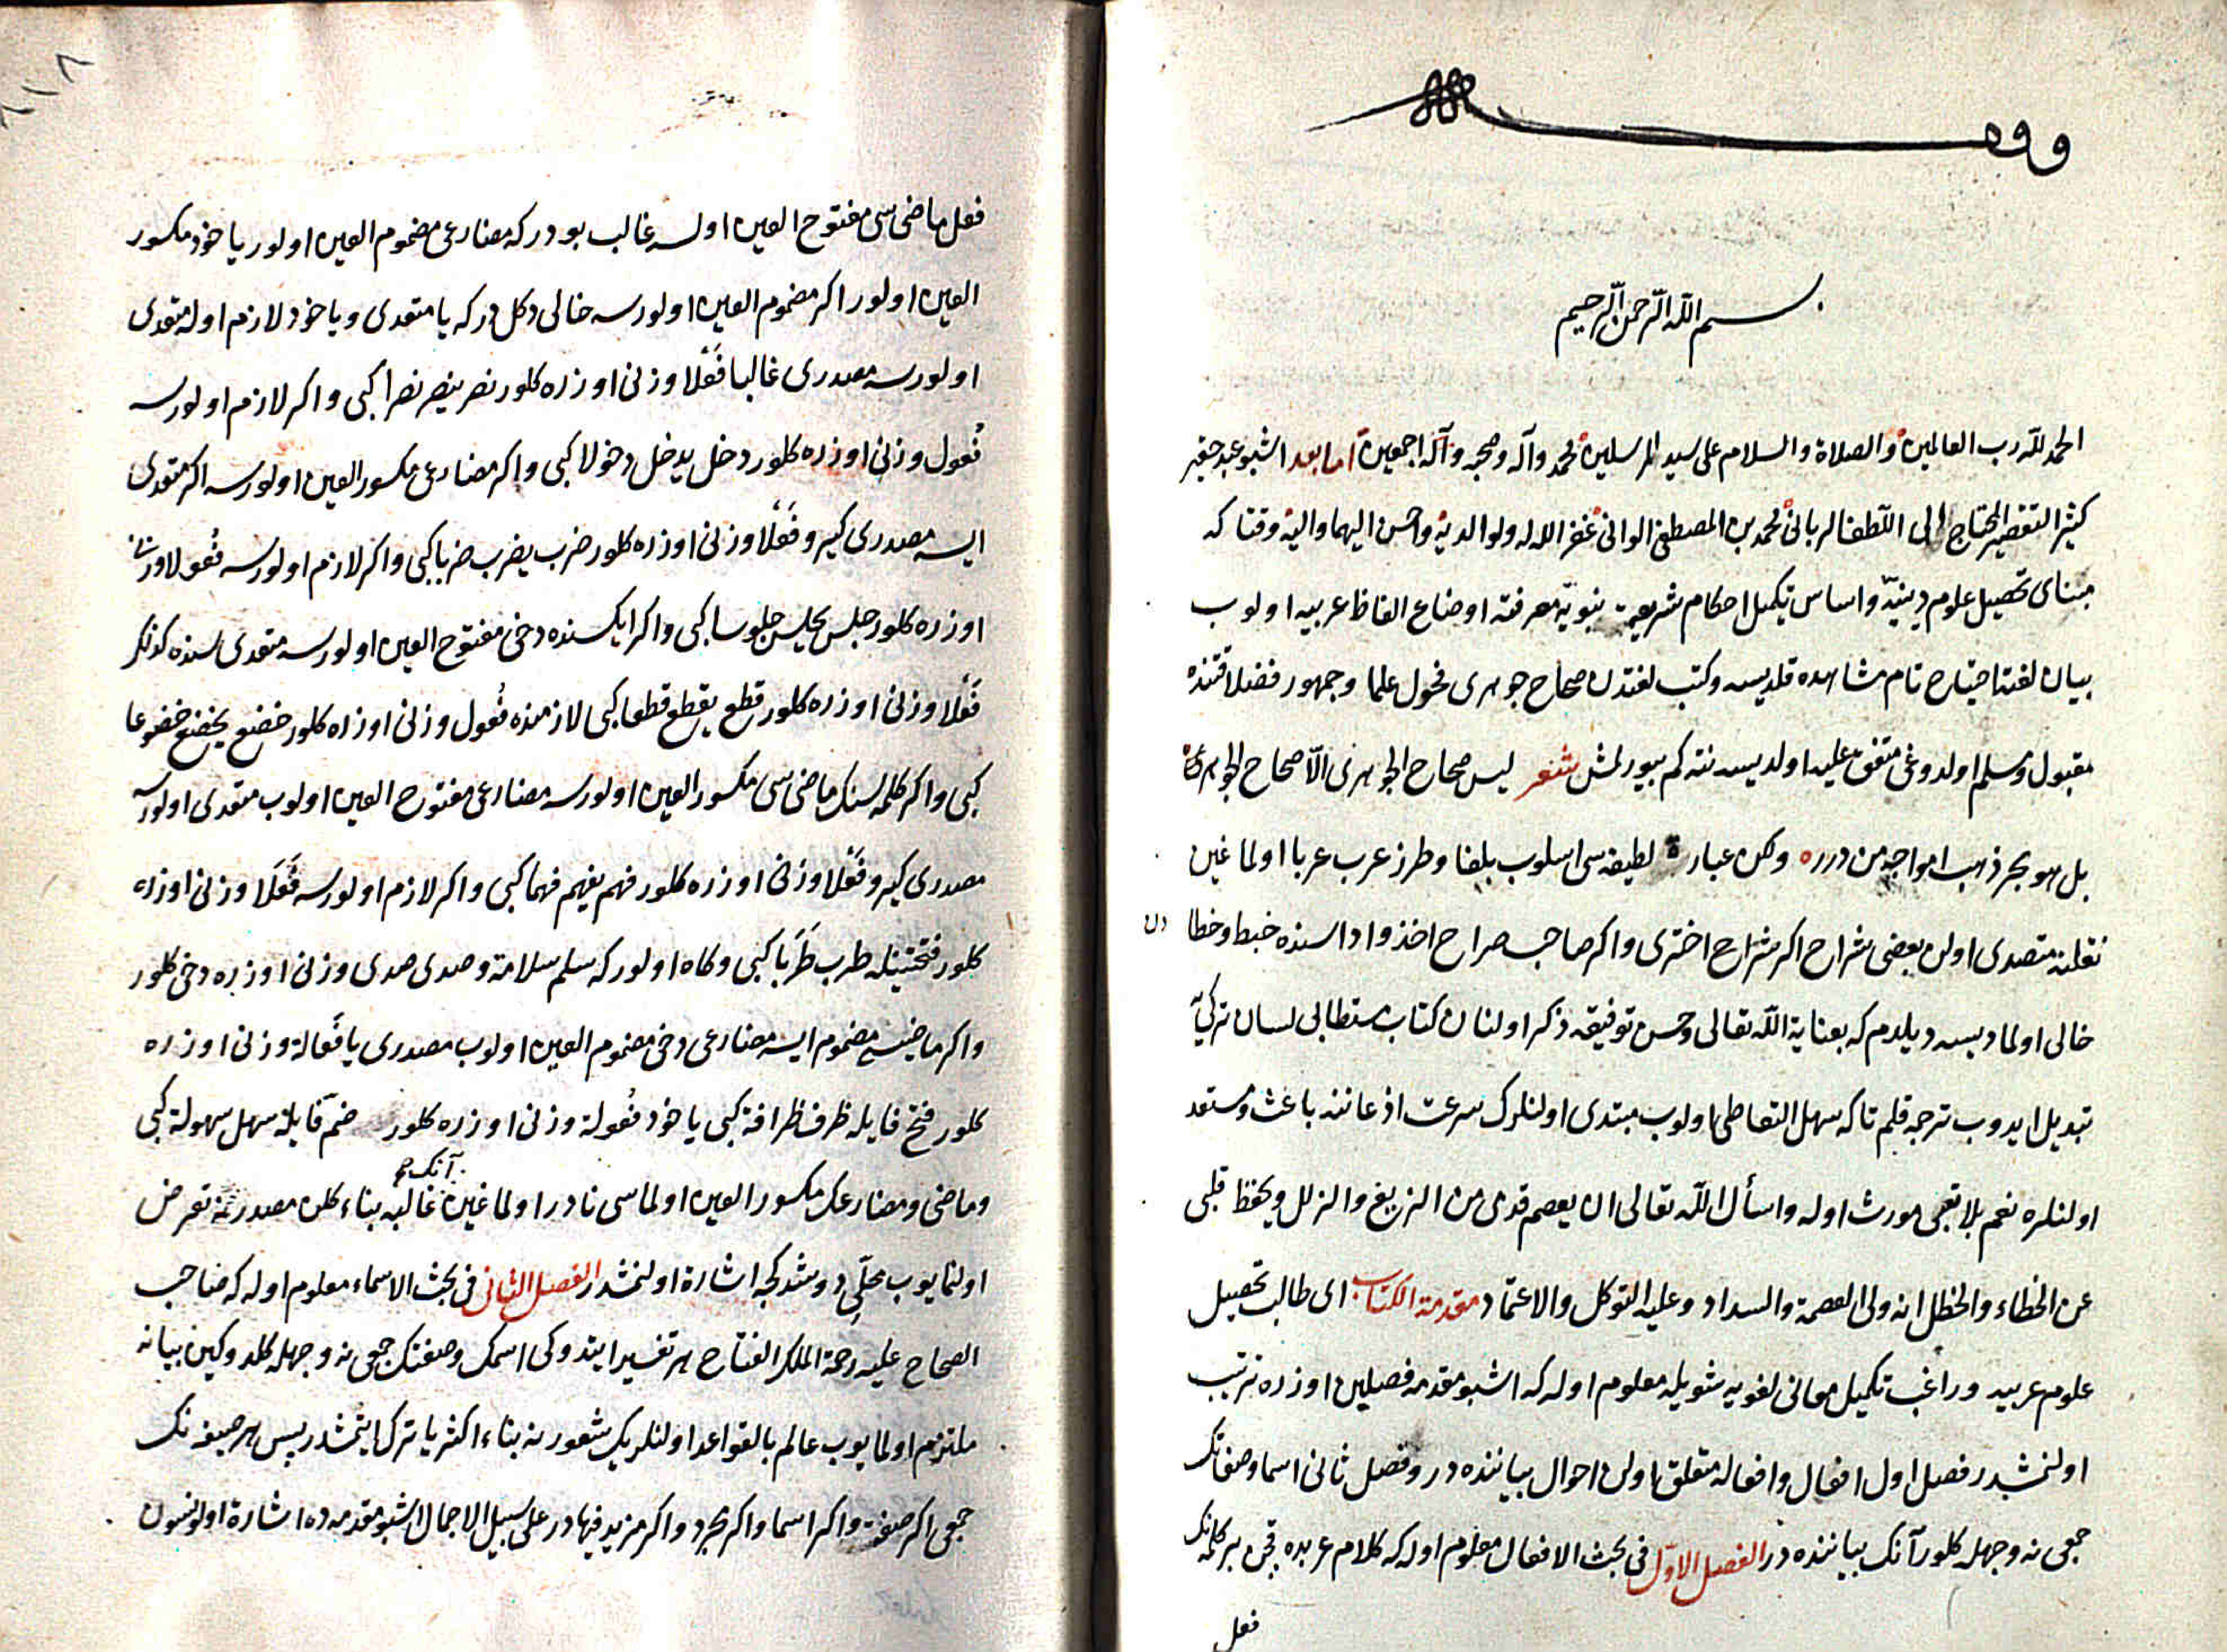 وقف
بسم الله الرحمن الرحيم
الحمد لله رب العالمين والصلاة والسلام على سيد المرسلين محمد وآله وصحبه وآله اجمعين اما بعد اشبو عبد حقير
كثير التقصير المحتاج الى اللطف الربانى محمد بن المصطفى الوانى غفر الله له ولوالديه واحسن اليهما واليه وقتا كه
مبناى تحصيل علوم دينيه واساس تكميل احكام شريعت نبويه معرفت اوضاع الفاظ عربيه اولوب
بيان لغته احتياج تام مشاهده قلديسه وكتب لغتدن صحاح جوهرى فحول علما وجمهور فضلا قتنده
مقبول ومسلم اولدوغى متفق عليه اولديسه نته كم بيورلمش شعر ليس صحاح الجوهرى الا صحاح الجوهرى
بل هو بحر ذهب امواجه من درره ولكن عبارة لطيفه سى اسلوب بلغا وطرز عرب عربا اولماغين
نقلنه متصدى اولن بعضى شراح اكر شراح اخترى واكر صاحب صراح اخذ وادا سنده خبط وخطا دن
خالى اولماديسه ديلدم كه بعناية الله تعالى وحسن توفيقه ذكر اولنان كتاب مستطابى لسان تركى يه
تبديل ايدوب ترجمه قلم تا كه سهل التعاطى اولوب مبتدى اولنلرك سرعت اذعاننه باعث ومستعد
اولنلره نغم بلا تعبى مورث اوله واسأل الله تعالى ان يعصم قدمى من الزيغ والزلل ويحفظ قلبى
عن الخطاء والخطل انه ولى العصمة والسداد وعليه التوكل والاعتماد مقدمة الكتاب اى طالب تحصيل
علوم عربيه وراغب تكميل معانى لغويه شويله معلوم اوله كه اشبو مقدمه فصلين اوزره ترتيب
اولنمشدر فصل اول افعال وافعاله متعلق اولن احوال بياننده در وفصل ثانى اسما وصفاتك
جمعى نه وجهله كلور آنك بياننده در الفصل الاول فى بحث الافعال معلوم اوله كه كلام عربده قچن بر كلمه نك
فعل
فعل ماضى سى مفتوح العين اولسه غالب بودر كه مضارعى مضموم العين اولور ياخود مكسور
العين اولور اكر مضموم العين اولورسه خالى دكلدر كه يا متعدى وياخود لازم اوله متعدى
اولورسه مصدرى غالبا فَعْلًا وزنى اوزره كلور نصر ينصر نصرا كبى واكر لازم اولورسه
فُعول وزنى اوزره كلور دخل يدخل دخولا كبى واكر مضارعى مكسور العين اولورسه اكر متعدى
ايسه مصدرى كيرو فَعْلًا وزنى اوزره كلور ضرب يضرب ضربا كبى واكر لازم اولورسه فُعولا وزنى
اوزره كلور جلس يجلس جلوسا كبى واكر ايكسنده دخى مفتوح العين اولورسه متعدى سنده كذلك
فَعْلًا وزنى اوزره كلور قطع يقطع قطعا كبى لازمنده فُعول وزنى اوزره كلور خضع يخضع خضوعا
كبى واكر كلمه نك ماضى سى مكسور العين اولورسه مضارعى مفتوح العين اولوب متعدى اولورسه
مصدرى كيرو فَعْلًا وزنى اوزره كلور فهم يفهم فهما كبى واكر لازم اولورسه فَعَلًا وزنى اوزره
كلور فتحتينله طرب طَرَبا كبى وكاه اولور كه سلم سلامة وصدى صدى وزنى اوزره دخى كلور
واكر ماضيسى مضموم ايسه مضارعى دخى مضموم العين اولوب مصدرى يا فَعالة وزنى اوزره
كلور فتح فا يله ظرف ظرافة كبى ياخود فُعولة وزنى اوزره كلور ضم فا يله سهل سهولة كبى
وماضى ومضارعك مكسور العين اولماسى نادر اولماغين آنكچه غالبه بناء كلن مصدرنه تعرض
اولنمايوب محلى دوشدكجه اشارة اولنمشدر الفصل الثانى فى بحث الاسماء معلوم اوله كه صاحب
الصحاح عليه رحمة الملك الفتاح هر تفسير ايتدوكى اسمك وصفتك جمعى نه وجهله كلدوكين بيانه
ملتزم اولمايوب عالم بالقواعد اولنلرك شعورينه بناء اكثريا ترك ايتمشدر پس هر صيغه نك
جمعى اكر صفت واكر اسما واكر مجرد واكر مزيد فيهادر على سبيل الاجمال اشبو مقدمه ده اشارة اولونسون